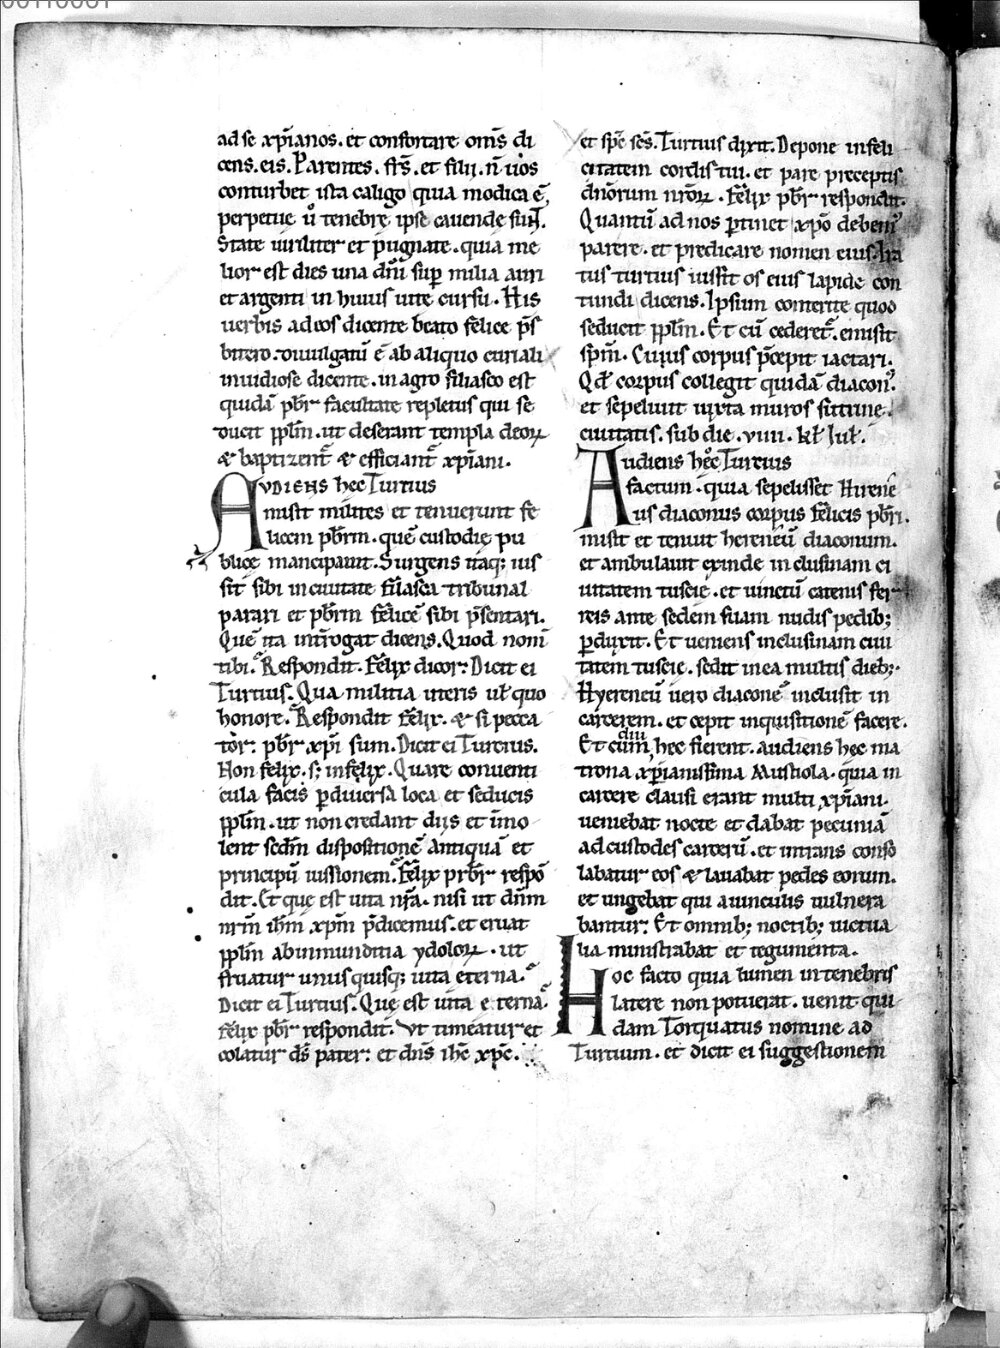 ad se xp̄ianos. et confortare om̄s di
cens. eis. Parentes. fr̄s. et filii. n̄ uos
conturbet ista caligo quia modica ē,
perpetuę ū tenebrę ipse cauende sūt.
State uiriliter et pugnate. quia me
lior est dies una dn̄i sup̄ milia auri
et argenti in huius uitę cursu. His
uerbis ad eos dicente beato felice p̄s
bitero. diuulgatū ē ab aliquo curiali
inuidiose dicente. in agro filiasco est
quidā pb̄r facultate repletus qui se
ducit ppl̄m. ut deserant templa deoꝝ
& baptizent̄ & efficiant̄ xp̄iani.
AVDIENS hęc Turtius
misit milites et tenuerunt fe
licem pb̄rm. quē custodię pu
blicę mancipauit. Surgens itaq; ius
sit sibi in ciuitate filasca tribunal
parari et pb̄rm felicē sibi p̄sentari.
Quē ita int̄rogat dicens. Quod nom̄
tibi. Respondit. Felix dicor: Dicit ei
Turtius. Qua militia uteris ul̄ quo
honore. Respondit felix. & si pecca
tor: pb̄r xp̄i sum. Dicit ei Turtius.
Non felix. s; infelix. Quare conuenti
cula facis p̄ diuersa loca et seducis
ppl̄m. ut non credant diis et īmo
lent sedm̄ dispositionē antiquā et
principū iussionem. Felix prb̄r respō
dit. Et quę est uita nr̄a. nisi ut dn̄m
nr̄m ih̄m xp̄m p̄dicemus. et eruat
ppl̄m ab inmunditia ydoloꝝ. ut
fruatur unusquisq; uita eterna.
Dicit ei Turtius. Quę est uita eterna.
Felix pb̄r respondit. Vt timeatur et
colatur ds̄ pater: et dn̄s ih̄c xp̄c.
et sp̄c sc̄s. Turtius dixit. Depone infeli
citatem cordis tui. et pare preceptis
dn̄orum nr̄oꝝ. Felix pb̄r respondit.
Quantū ad nos p̄tinet xp̄o debem᾿
parere. et predicare nomen eius. Ira
tus turtius iussit os eius lapide con
tundi dicens. Ipsum conterite quod
seducit ppl̄m. Et cū cederet̄. emisit
sp̄m. Cuius corpus p̄cepit iactari.
Qd̄ corpus collegit quidā diacon᾿.
et sepeliuit iuxta muros sutrine
ciuitatis. sub die. viiii. kl̄ Iul̄.
Audiens hoc Turtius
factum. quia sepelisset Hirene
us diaconus corpus felicis pb̄ri.
misit et tenuit hereneū diaconum.
et ambulauit exinde in clusinam ci
uitatem tuscię. et uinctū catenis fer
reis ante sedem suam nudis pedib;
p̄duxit. Et ueniens inclusinam ciui
tatem tuscię. sedit in ea multis dieb;.
Hyereneū uero diaconē inclusit in
carcerem. et cepit inquisitionē facere.
Et cum diu hęc fierent. audiens hęc ma
trona xp̄ianissima Mustiola. quia in
carcere clausi erant multi xp̄iani.
ueniebat nocte et dabat pecuniā
ad custodes carcerū. et intrans conso
labatur eos & lauabat pedes eorum.
et ungebat qui a uinculis uulnera
bantur. Et omnib; noctib; uictua
lia ministrabat et tegumenta.
Hoc facto quia lumen in tenebris
latere non potuerat. uenit qui
dam Torquatus nomine ad
Turtium. et dicit ei suggestionem